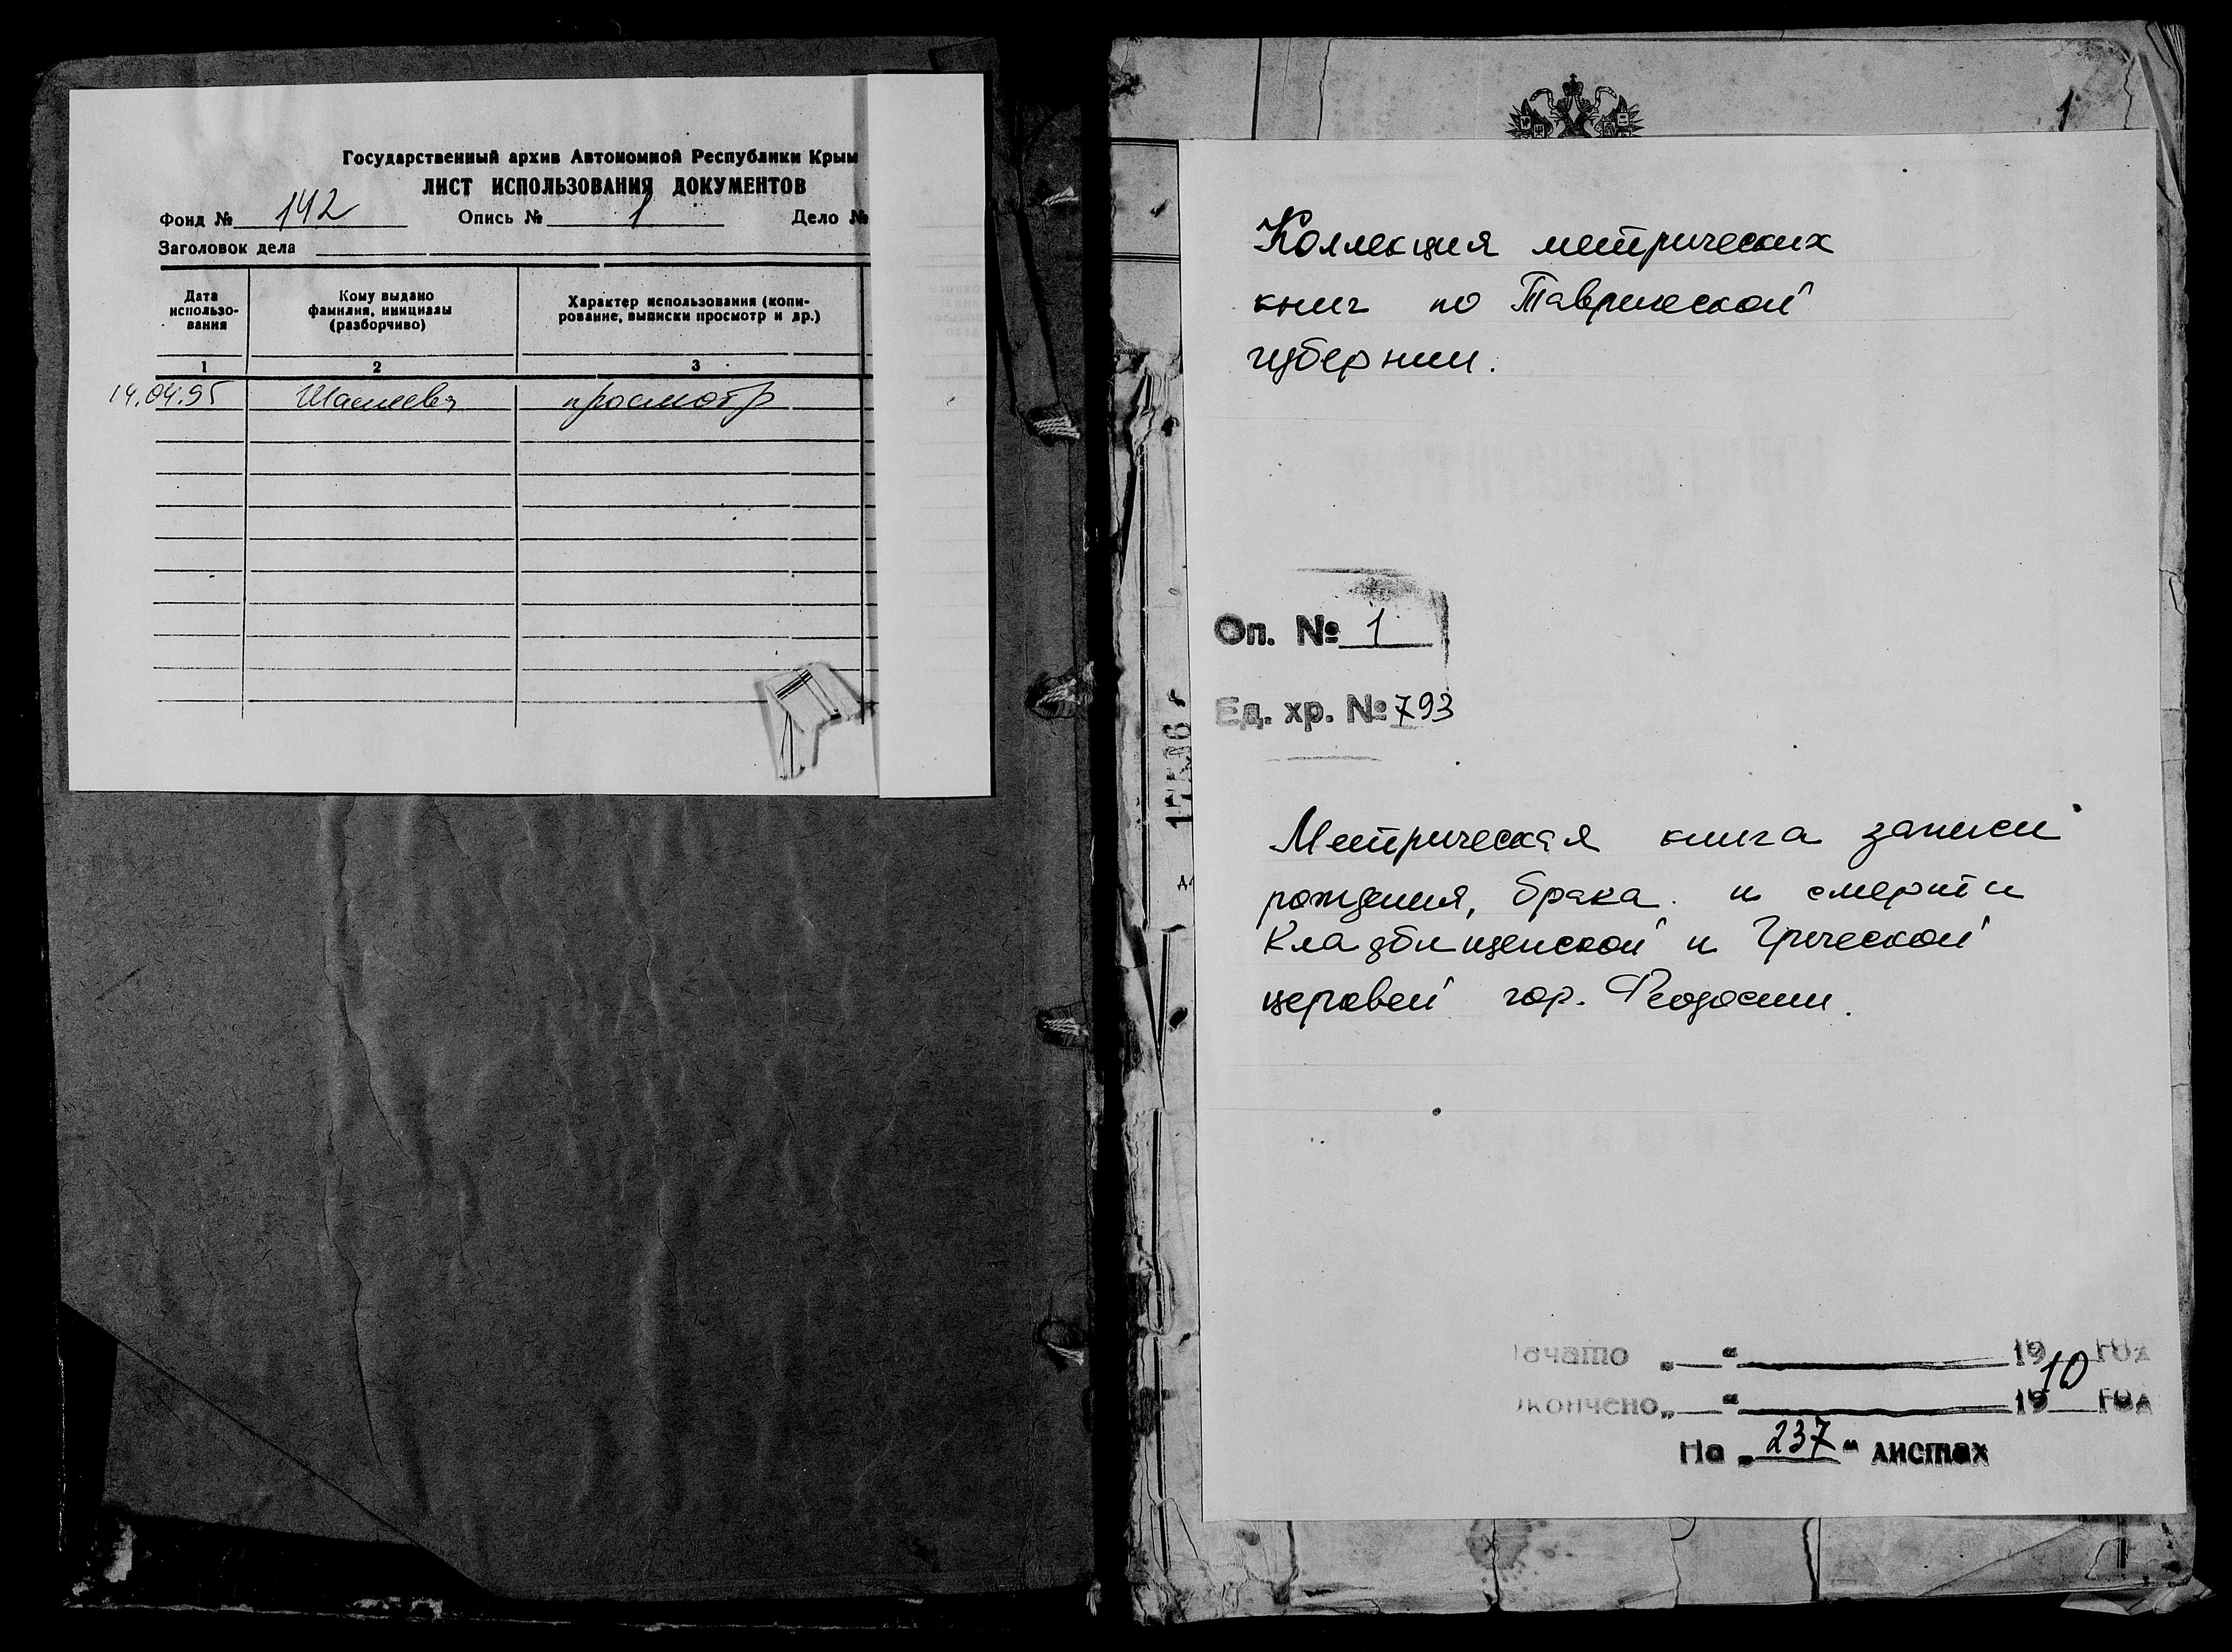 Государственный архив Автономной Республики Крым
ЛИСТ ИСПОЛЬЗОВАНИЯ ДОКУМЕНТОВ
Фонд № 142 Опись № 1 Дело №
Заголовок дела
Дата использо-вания
Кому выдано фамилия, инициалы (разборчиво)
Характер использования (копи-рование, выписки просмотр и др.)
1 2 3
14.04.95 просмотр
1
Коллекция метрических
книг по Таврической
губернии.
Оп. № 1
Ед. хр. № 793
Метрическая книга записи
рождения, брака и смерти
Кладбищенской и Греческой
церквей гор. Феодосии.
Начато „ “ 19 год
Окончено „ “ 1910 год
На „237“ листах